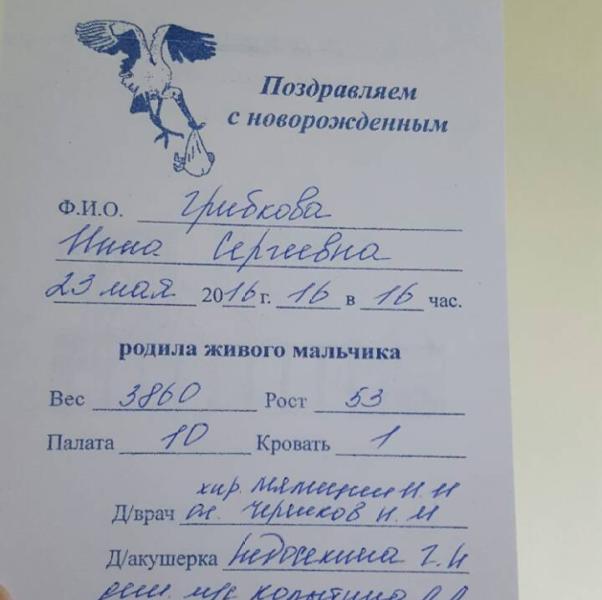 Поздравляем
с новорожденным
Ф.И.О. Грибкова
Нина Сергеевна
23 мая 2016 г. 16 в 16 час.
родила живого мальчика
Вес 3860 Рост 53
Палата 10 Кровать 1
хир. И. И
Д/врач Черников И. И
Д/акушерка Недосекина Г. Н